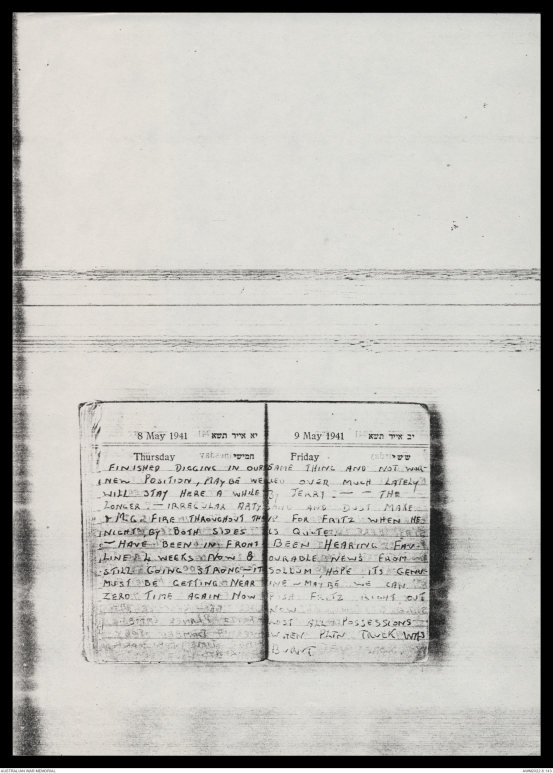 8 May 1941 יא אייר תשא
Thursday חמישי
FINISHED DIGGING IN OUR
NEW POSITION, MAYBE WE
WILL STAY HERE A WHILE
LONGER. — IRREGULAR ARTY
& M.G. FIRE THROUGHOUT THE
NIGHT BY BOTH SIDES
— HAVE BEEN IN FRONT
LINE 4 WEEKS NOW &
STILL GOING STRONG — IT
MUST BE GETTING NEAR
ZERO TIME AGAIN NOW
9 May 1941 יב אייר תשא
Friday ששי
SAME THING AND NOT WOR-
RIED OVER MUCH LATELY
BY JERRY. — — THE
SAND AND DUST MAKE
IT FOR FRITZ WHEN HE
IS QUITE
BEEN HEARING FAV-
OURABLE NEWS FROM
SOLLUM HOPE ITS GENU-
INE — MAYBE WE CAN
PUSH FRITZ RIGHT OUT
NOW
LOST ALL POSSESSIONS
WHEN PLTN TRUCK WAS
BURNT
AUSTRALIAN WAR MEMORIAL